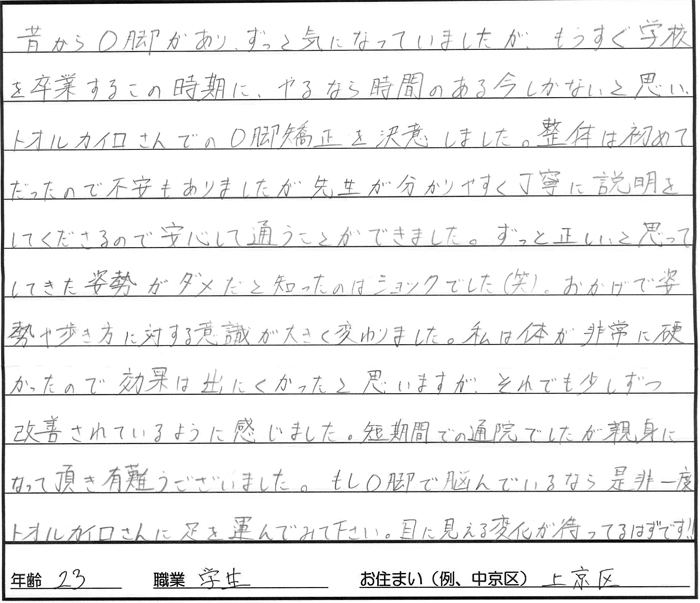 昔からO脚があり、ずっと気になっていましたが、もうすぐ学校
を卒業するこの時期に、やるなら時間のある今しかないと思い、
トオルカイロさんでのO脚矯正を決意しました。整体は初めて
だったので不安もありましたが先生が分かりやすく丁寧に説明を
してくださるので安心して通うことができました。ずっと正しいと思って
してきた姿勢がダメだと知ったのはショックでした(笑)。おかげで姿
勢や歩き方に対する意識が大きく変わりました。私は体が非常に硬
かったので効果は出にくかったと思いますが、それでも少しずつ
改善されているように感じました。短期間での通院でしたが親身に
なって頂き有難うございました。もしO脚で悩んでいるなら是非一度
トオルカイロさんに足を運んでみて下さい。目に見える変化が待ってるはずです!!
年齢 23 職業 学生 お住まい(例、中京区) 上京区